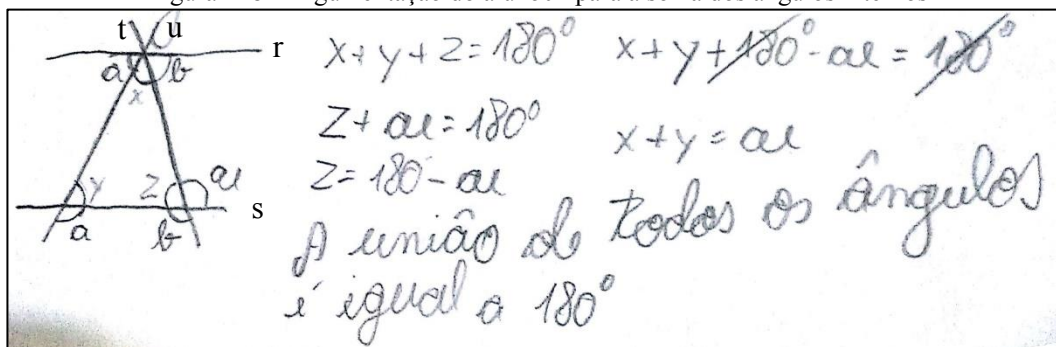 t u r
a b
x
y z ae s
a b
x + y + z = 180°
z + ae = 180°
z = 180 - ae
x + y + 180° - ae = 180°
x + y = ae
A união de todos os ângulos
é igual a 180°